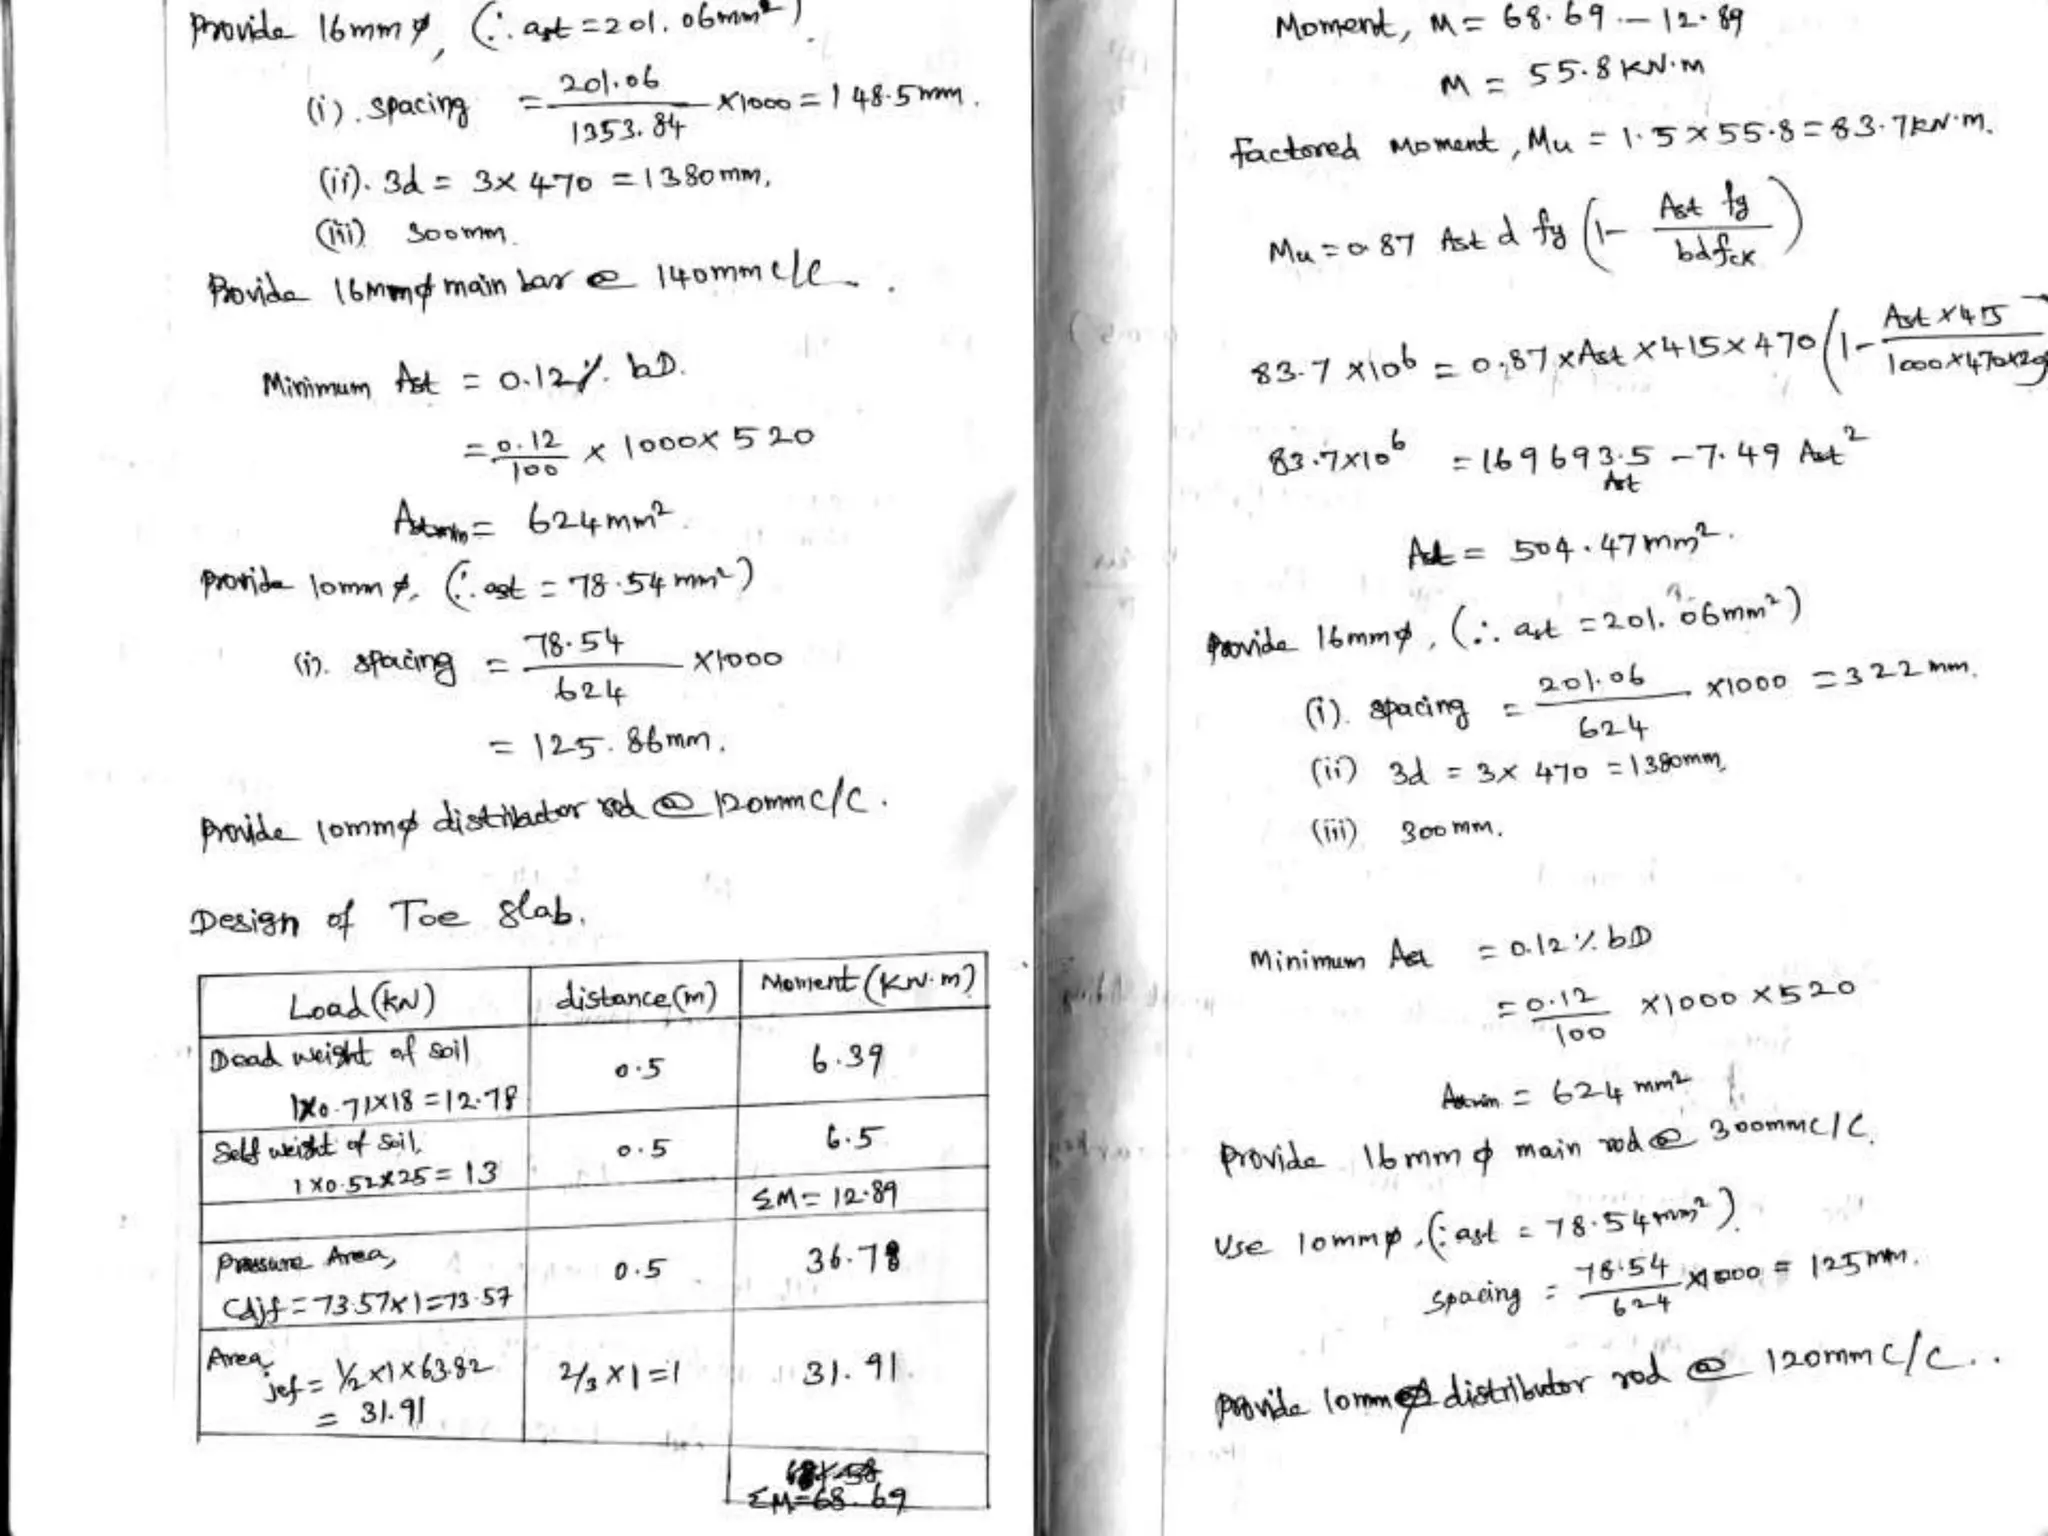 Provide 16mm φ, (∴ ast = 201.06mm²).
(i). spacing = 201.06/1353.84 ×1000 = 148.5mm.
(ii). 3d = 3× 470 = 1380mm,
(iii) 300mm.
Provide 16mmφ main bar @ 140mm c/c.
Minimum Ast = 0.12%. bD.
= 0.12/100 × 1000× 520
Astmin = 624mm².
Provide 10mm φ, (∴ ast = 78.54mm²)
(i). spacing = 78.54/624 ×1000
= 125.86mm.
Provide 10mmφ distributor rod @ 120mm c/c.
Design of Toe slab.
Load (kN) distance(m) Moment (KN.m)
Dead weight of soil
1×0.71×18 = 12.78 0.5 6.39
Self weight of soil,
1×0.52×25 = 13 0.5 6.5
ΣM = 12.89
Pressure Area,
Cdjf = 73.57×1=73.57 0.5 36.78
Area,
jef = ½×1×63.82 2/3 ×1 = 1 31.91.
= 31.91
ΣM=68.69
Moment, M = 68.69 – 12.89
M = 55.8 KN.m
Factored Moment, Mu = 1.5×55.8 = 83.7KN.m.
Mu = 0.87 Ast d fy (1- Ast fy/bdfck)
83.7 ×10⁶ = 0.87×Ast ×415×470(1- Ast×415/1000×470×20
83.7×10⁶ = 169693.5 Ast – 7.49 Ast²
Ast = 504.47mm².
Provide 16mmφ, (∴ ast = 201.06mm²)
(i). spacing = 201.06/624 ×1000 = 322mm.
(ii) 3d = 3× 470 = 1380mm,
(iii) 300mm.
Minimum Ast = 0.12% bD
= 0.12/100 ×1000×520
Astmin = 624 mm²
Provide 16mm φ main rod @ 300mmc/c.
Use 10mmφ, (∴ ast = 78.54mm²).
spacing = 78.54/624 ×1000 = 125mm.
Provide 10mmφ distributor rod @ 120mm c/c..